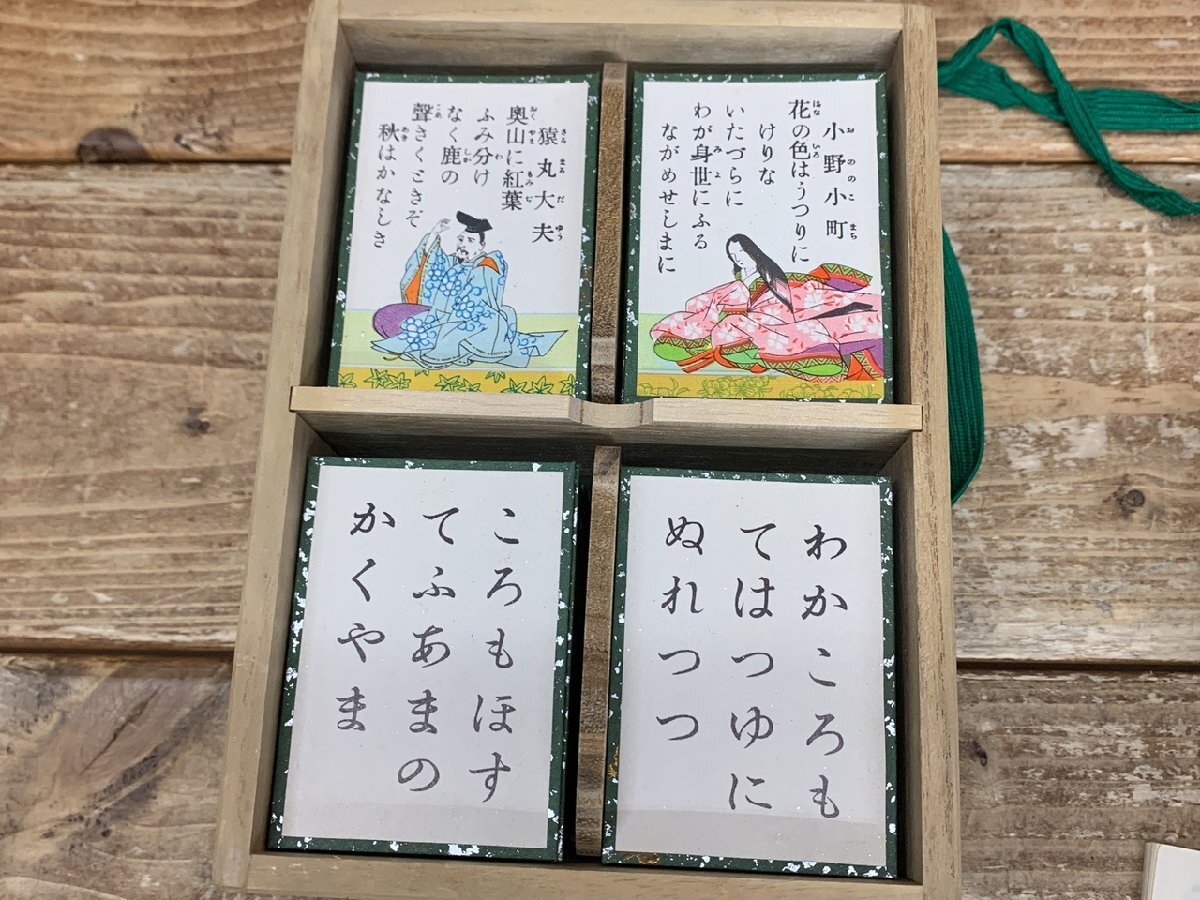 小野小町
花の色はうつりに
けりな
いたづらに
わが身世にふる
ながめせしまに
猿丸大夫
奥山に紅葉
ふみ分け
なく鹿の
聲きくときぞ
秋はかなしき
わかころも
てはつゆに
ぬれつつ
ころもほす
てふあまの
かくやま